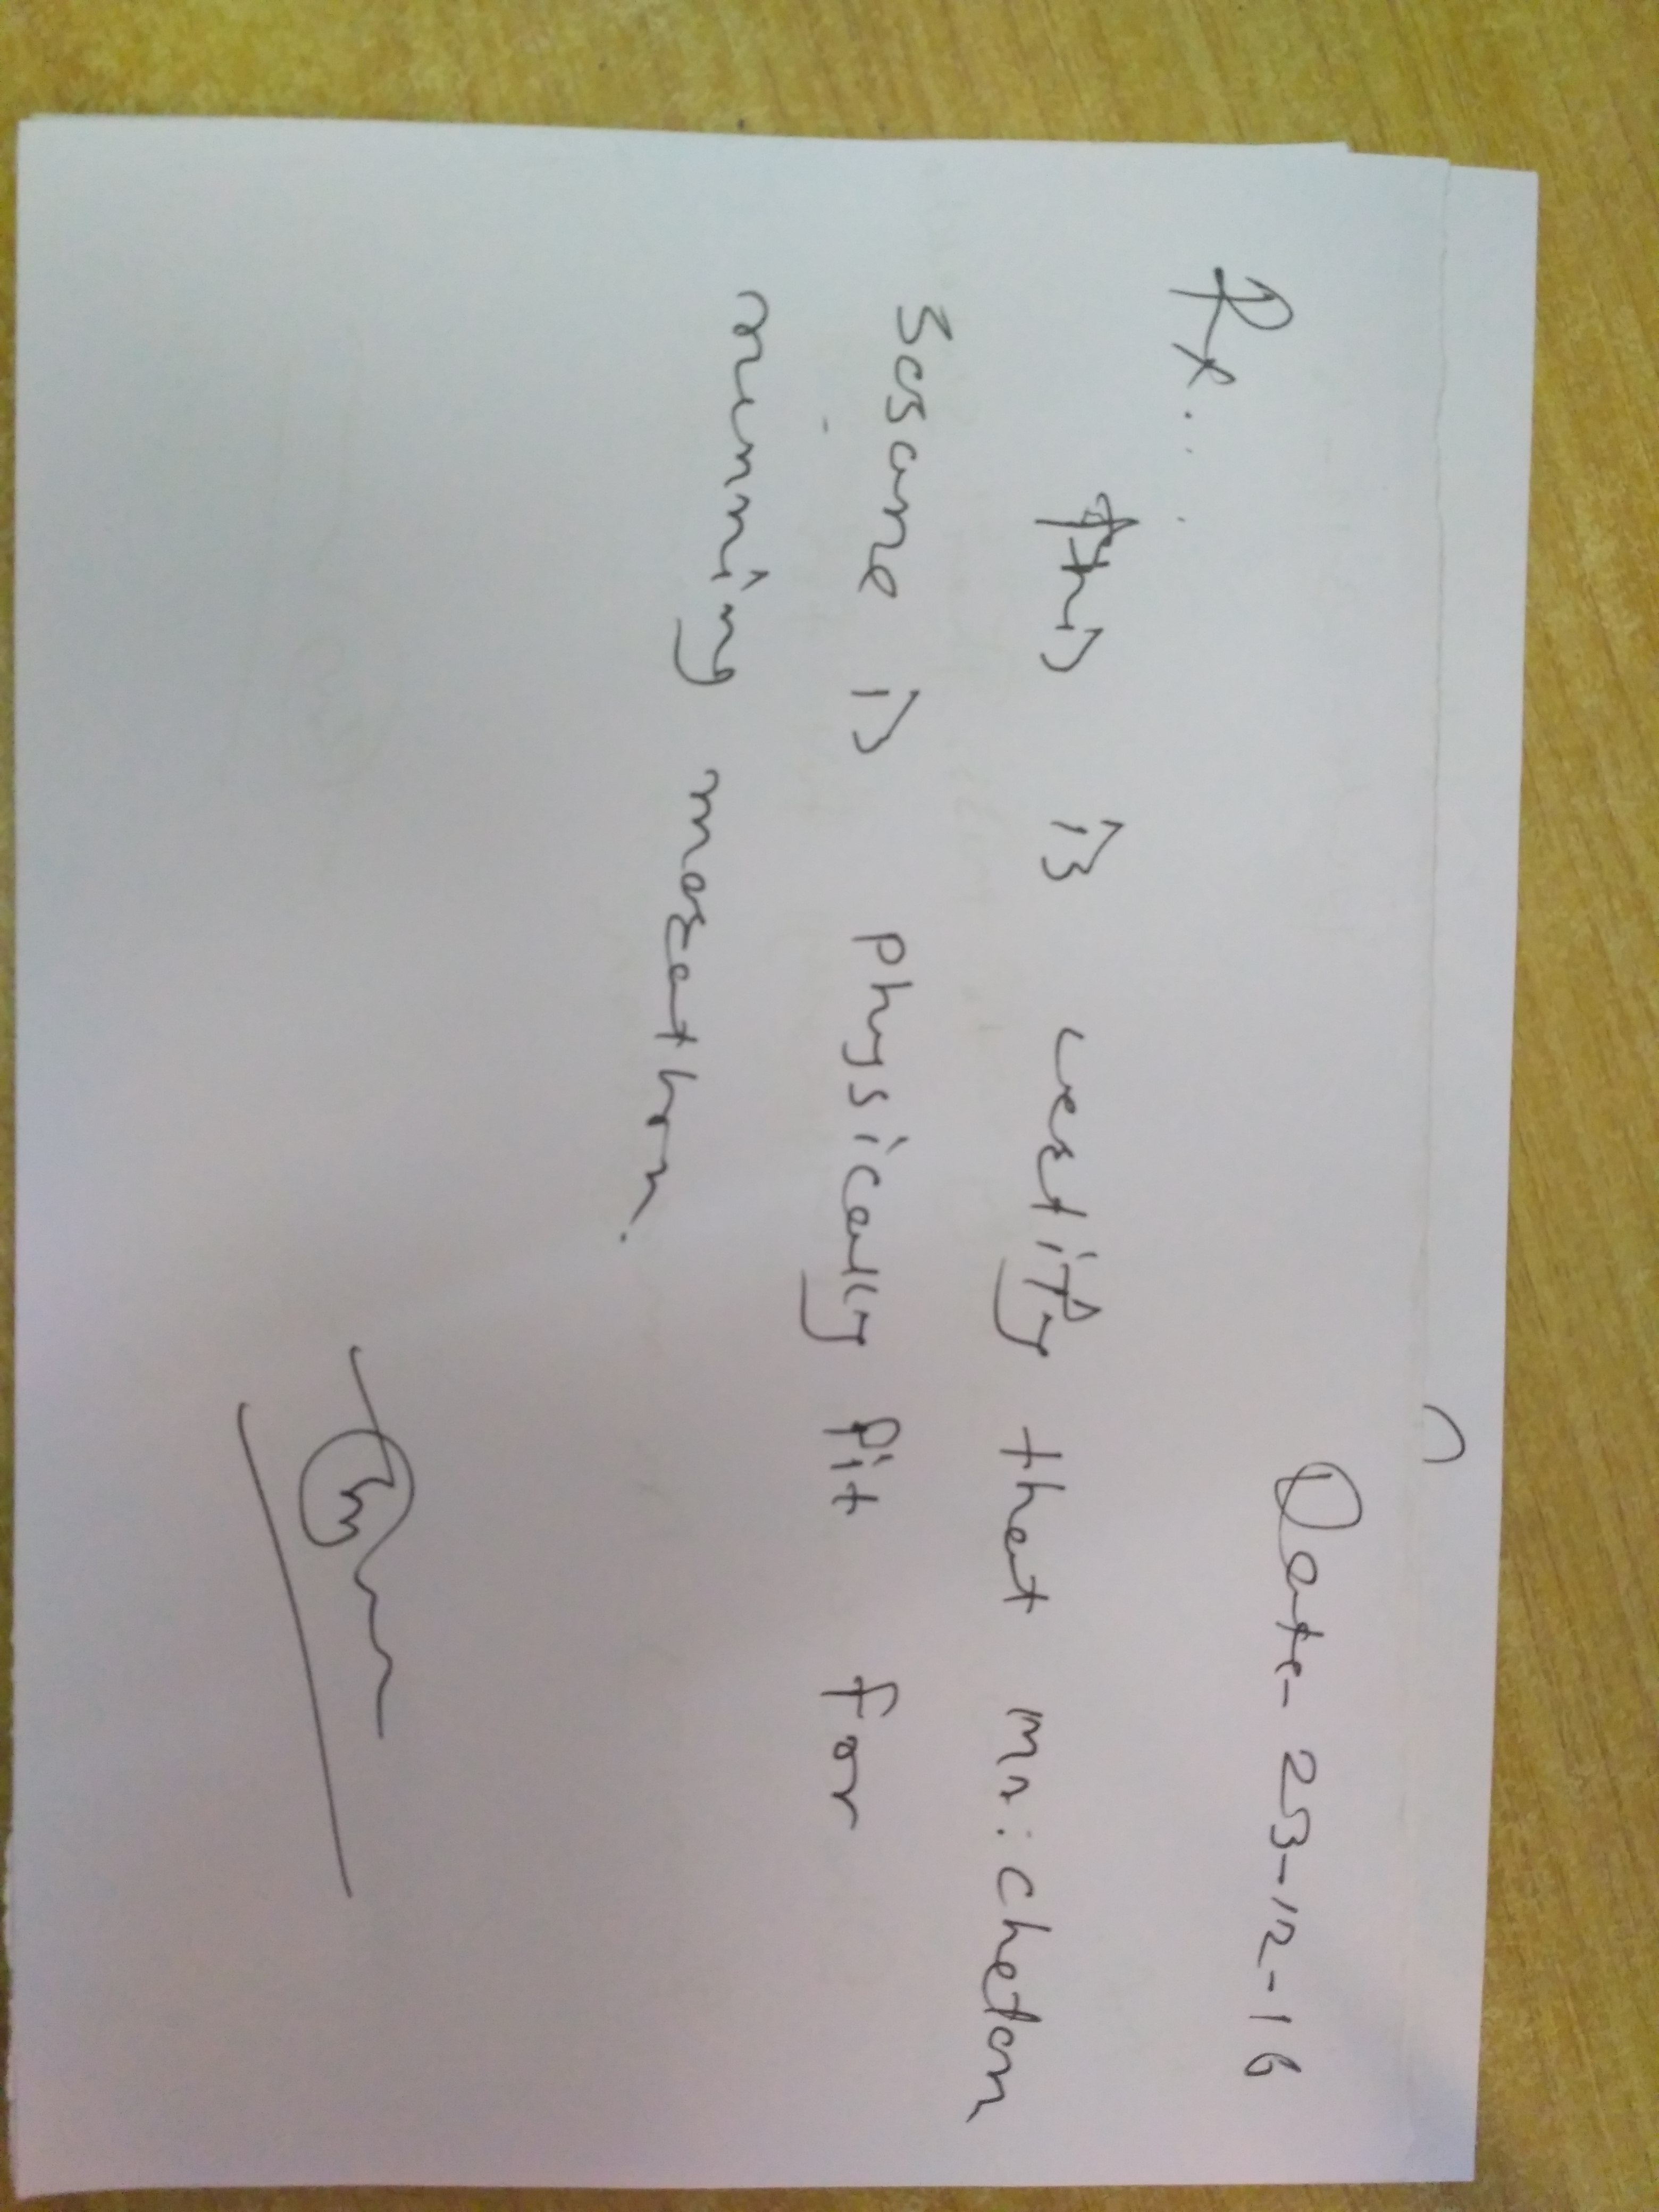 Date- 23-12-16
Rx.
this is certify that Mr. Chetan
Sasane is physically fit for
running marathon.